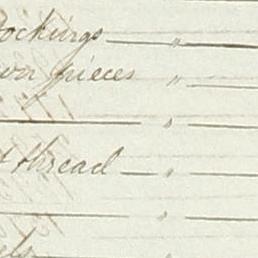 ockings "
von pieces "
"
t thread "
"
els "